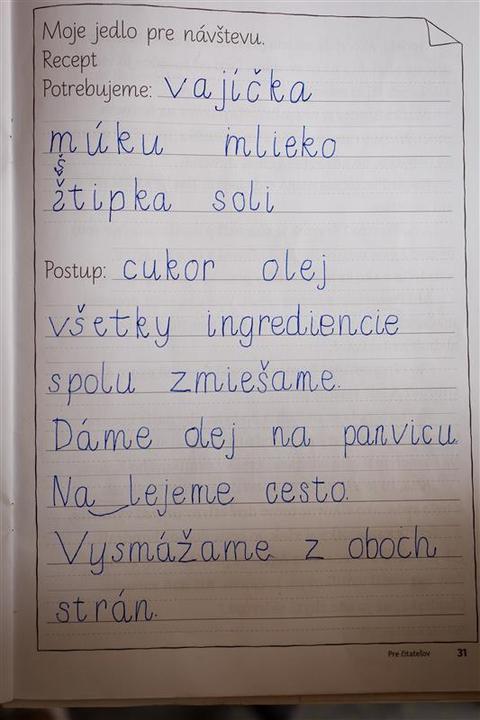 Moje jedlo pre návštevu.
Recept
Potrebujeme: vajíčka
múku mlieko
š
žtipka soli
Postup: cukor olej
všetky ingrediencie
spolu zmiešame.
Dáme olej na panvicu.
Na lejeme cesto.
Vysmážame z oboch
strán.
Pre čitateľov 31